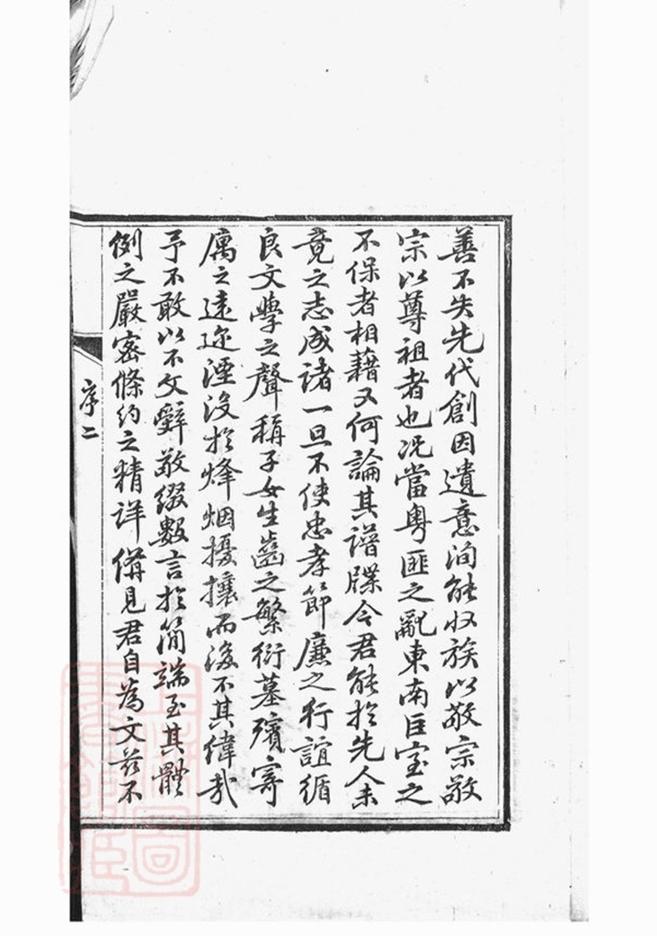 善不失先代創因遺意洵能收族以敬宗敬
宗以尊祖者也况當粤匪之亂東南巨室之
不保者相藉又何論其譜牒今君能於先人未
竟之志成諸一旦不使忠孝節廉之行誼循
良文學之聲稱子女生齒之繁衍墓殯寄
厲之遠近湮没於烽烟擾攘而後不其偉哉
予不敢以不文辭敬綴數言於簡端至其體
例之嚴密條約之精详備見君自為文茲不
序二